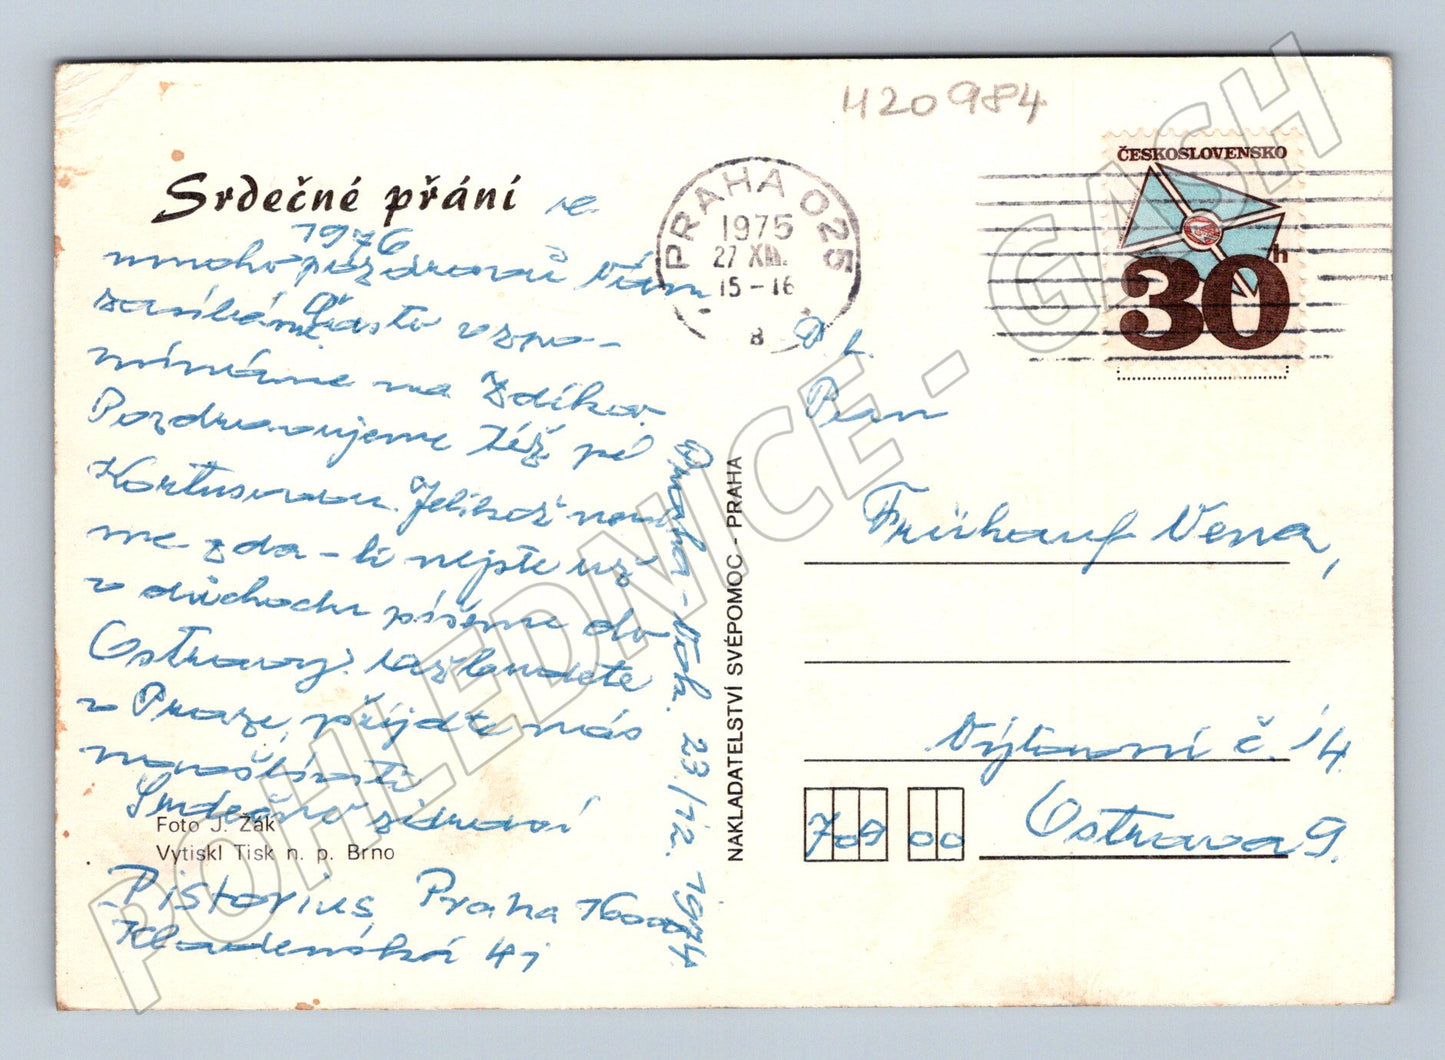 420984
ČESKOSLOVENSKO
30h
PRAHA 025
1975
27 XII.
15-16
8
Srdečné přání
1976
mnoho pozdravů Vám
zasíláme Často vzpo-
mínáme na Zdíkov
Pozdravujeme též pí
Kortusovou. Jelikož neví
me zda-li nejste už
v důchodu píšeme do
Ostravy. až budete
v Praze, přijďte nás
navštívit.
Srdečně zdraví
Foto J. Žák
Vytiskl Tisk n. p. Brno
Pistorius Praha 16000
Kladenská 41
Praha 23/12. 1974
NAKLADATELSTVÍ SVÉPOMOC - PRAHA
Pan
Frühauf Vena,
Výtovní č. 14
709 00
Ostrava 9.
POHLEDNICE - GASH